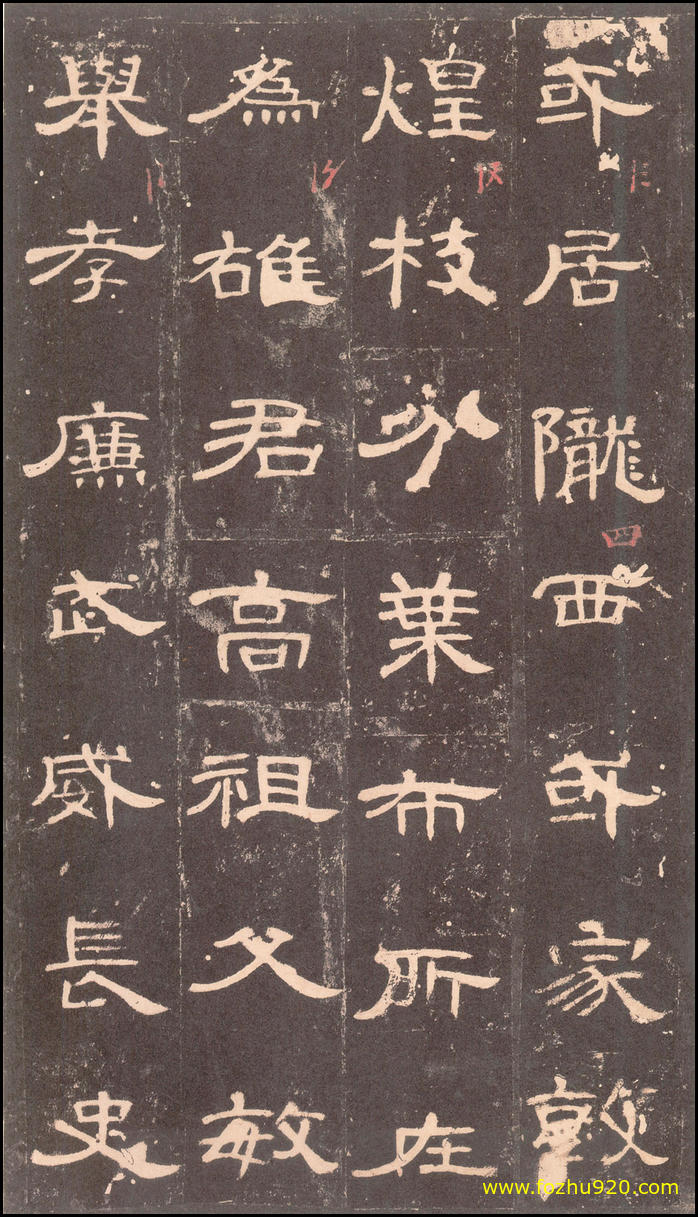 或居隴西或家敦
煌枝分葉布所在
為雄君高祖父敏
舉孝廉武威長史
四
www.fozhu920.com